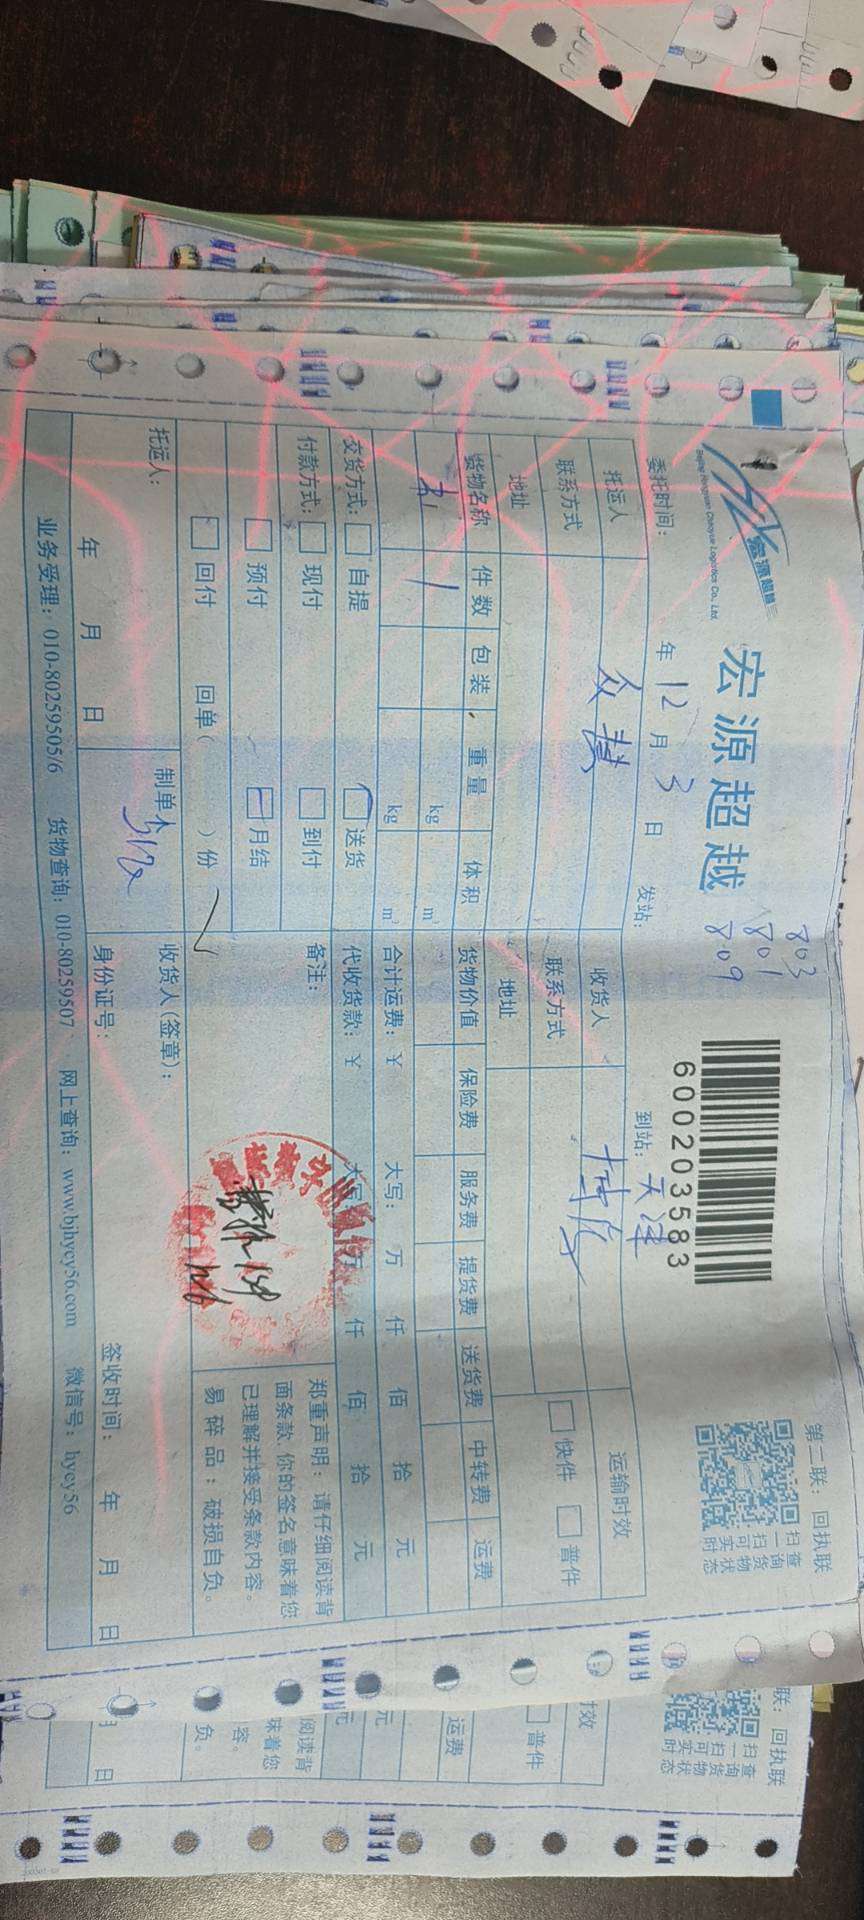 宏源超越
Beijing Hongyuan Chaoyue Logistics Co., Ltd.
宏源超越
803
801
809
600203583
第二联：回执联
扫一扫
查询货物状态
可实时
委托时间： 年 12 月 3 日 发站： 到站：天津
托运人 众慧 收货人 运输时效
联系方式 联系方式 快件 普件
地址 地址
货物名称 件数 包装 重量 体积 货物价值 保险费 服务费 提货费 送货费 中转费 运费
1 kg m³
kg m³ 合计运费：¥ 大写： 万 仟 佰 拾 元
交货方式： 自提 送货 代收货款：¥ 大写 万 仟 佰 拾 元
付款方式： 现付 到付 备注：
预付 月结
回付 回单( )份
郑重声明：请仔细阅读背
面条款，你的签名意味着您
已理解并接受条款内容。
易碎品：破损自负。
托运人： 制单人 收货人(签章)：
年 月 日 身份证号： 签收时间： 年 月 日
业务受理：010-80259505/6 货物查询：010-80259507 网上查询：www.bjhycy56.com 微信号：hycy56
联：回执联
时效
普件
运费
元
元
阅读背
味着您
容。
负。
日